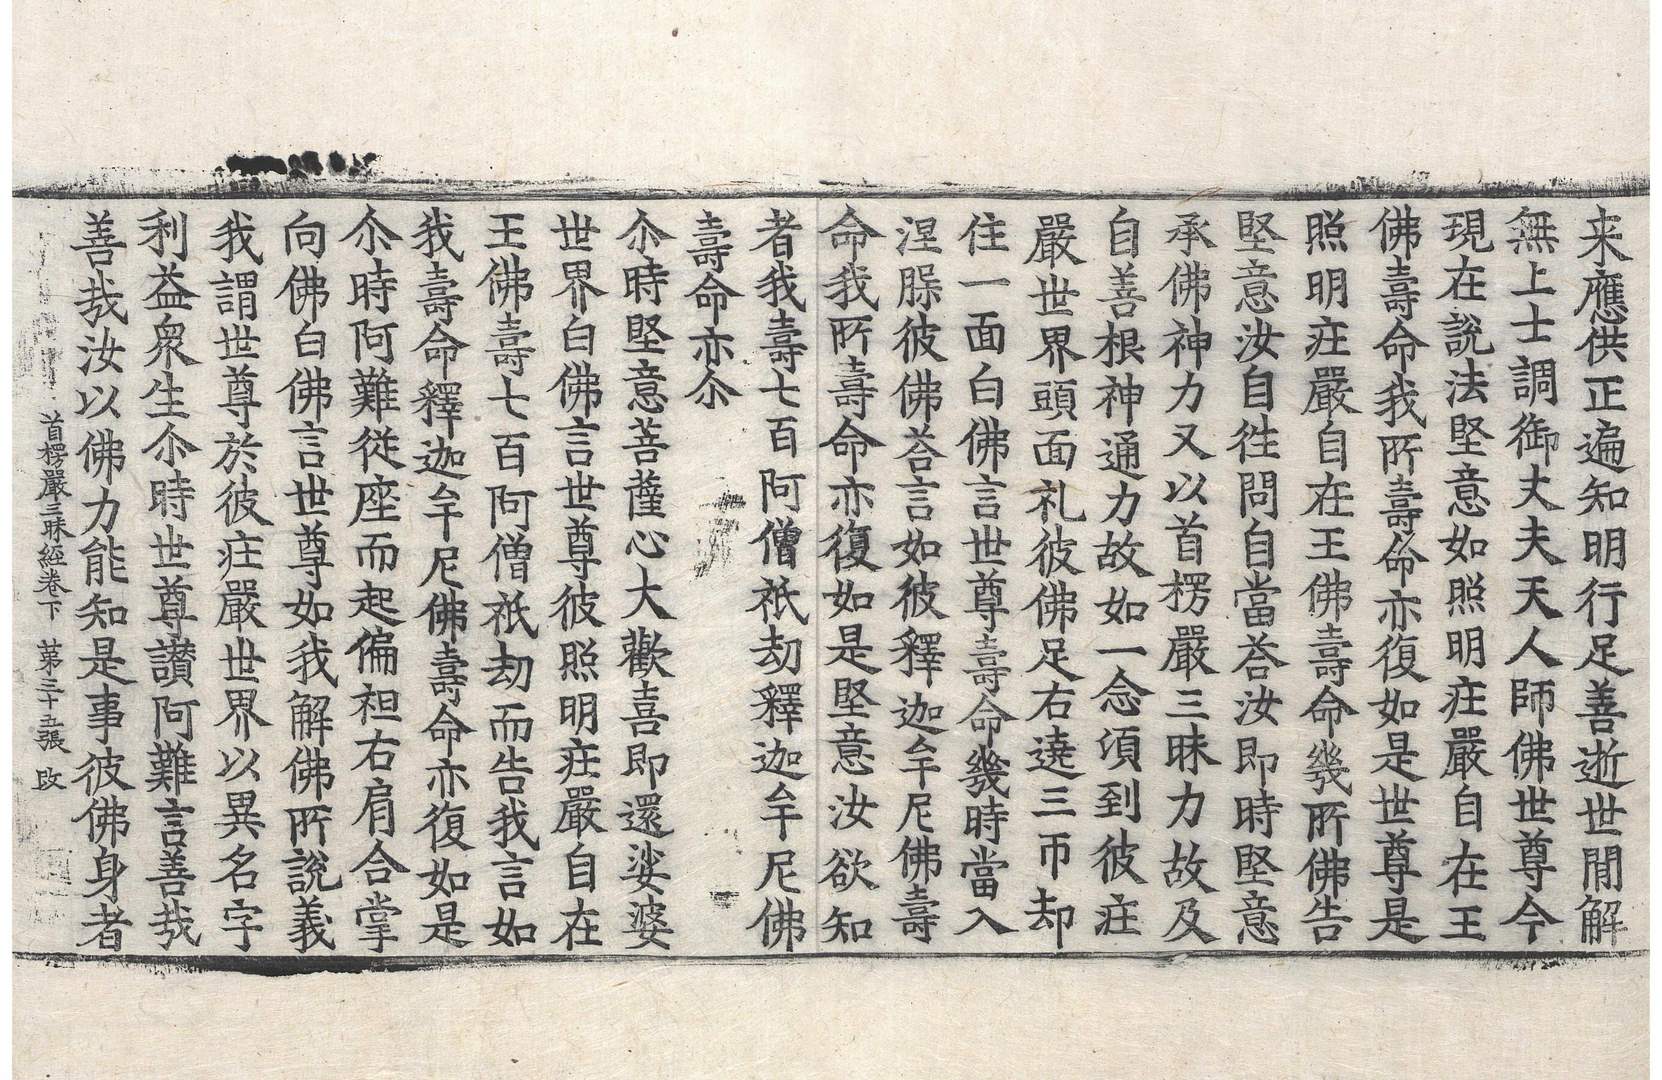 来應供正遍知明行足善逝世閒解
無上士調御丈夫天人師佛世尊今
現在說法堅意如照明庄嚴自在王
佛壽命我所壽命亦復如是世尊是
照明庄嚴自在王佛壽命幾所佛告
堅意汝自徃問自當荅汝即時堅意
承佛神力又以首楞嚴三昧力故及
自善根神通力故如一念湏到彼庄
嚴世界頭面礼彼佛足右遶三帀却
住一面白佛言世尊壽命幾時當入
涅槃彼佛荅言如彼釋迦牟尼佛壽
命我所壽命亦復如是堅意汝欲知
者我壽七百阿僧祇劫釋迦牟尼佛
壽命亦尒
尒時堅意菩薩心大歡喜即還娑婆
世界白佛言世尊彼照明庄嚴自在
王佛壽七百阿僧祇劫而告我言如
我壽命釋迦牟尼佛壽命亦復如是
尒時阿難從座而起偏袒右肩合掌
向佛白佛言世尊如我解佛所說義
我謂世尊於彼庄嚴世界以異名字
利益衆生尒時世尊讃阿難言善㢤
善㢤汝以佛力能知是事彼佛身者
首楞嚴三昧經卷下 第三十五張 改